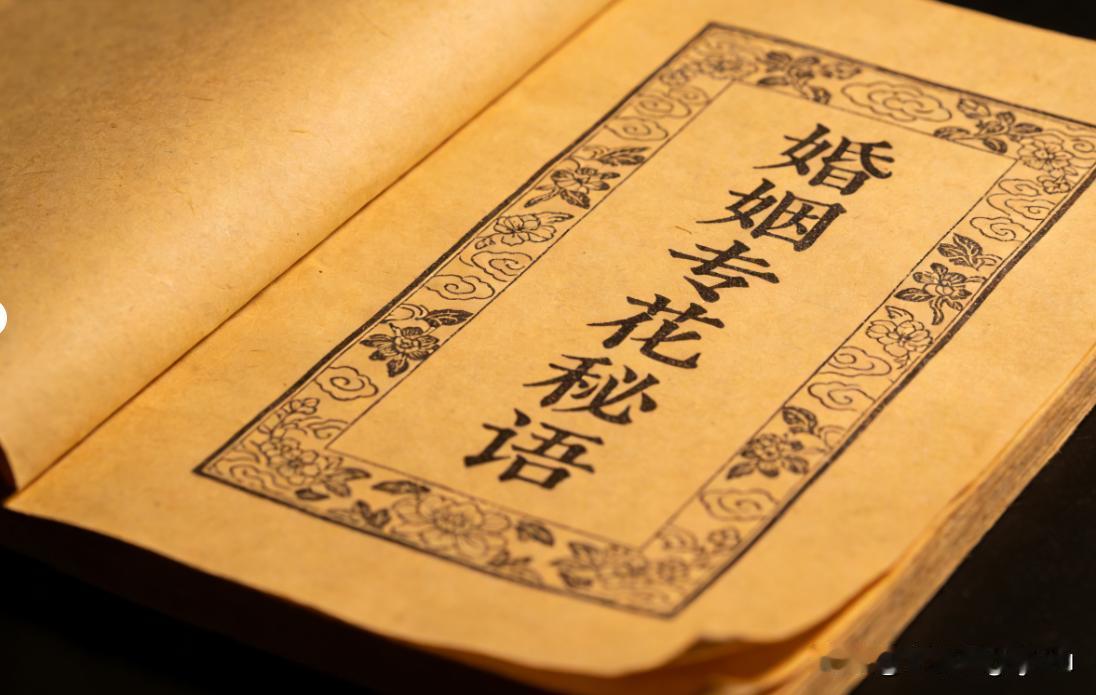 婚姻专花秘语